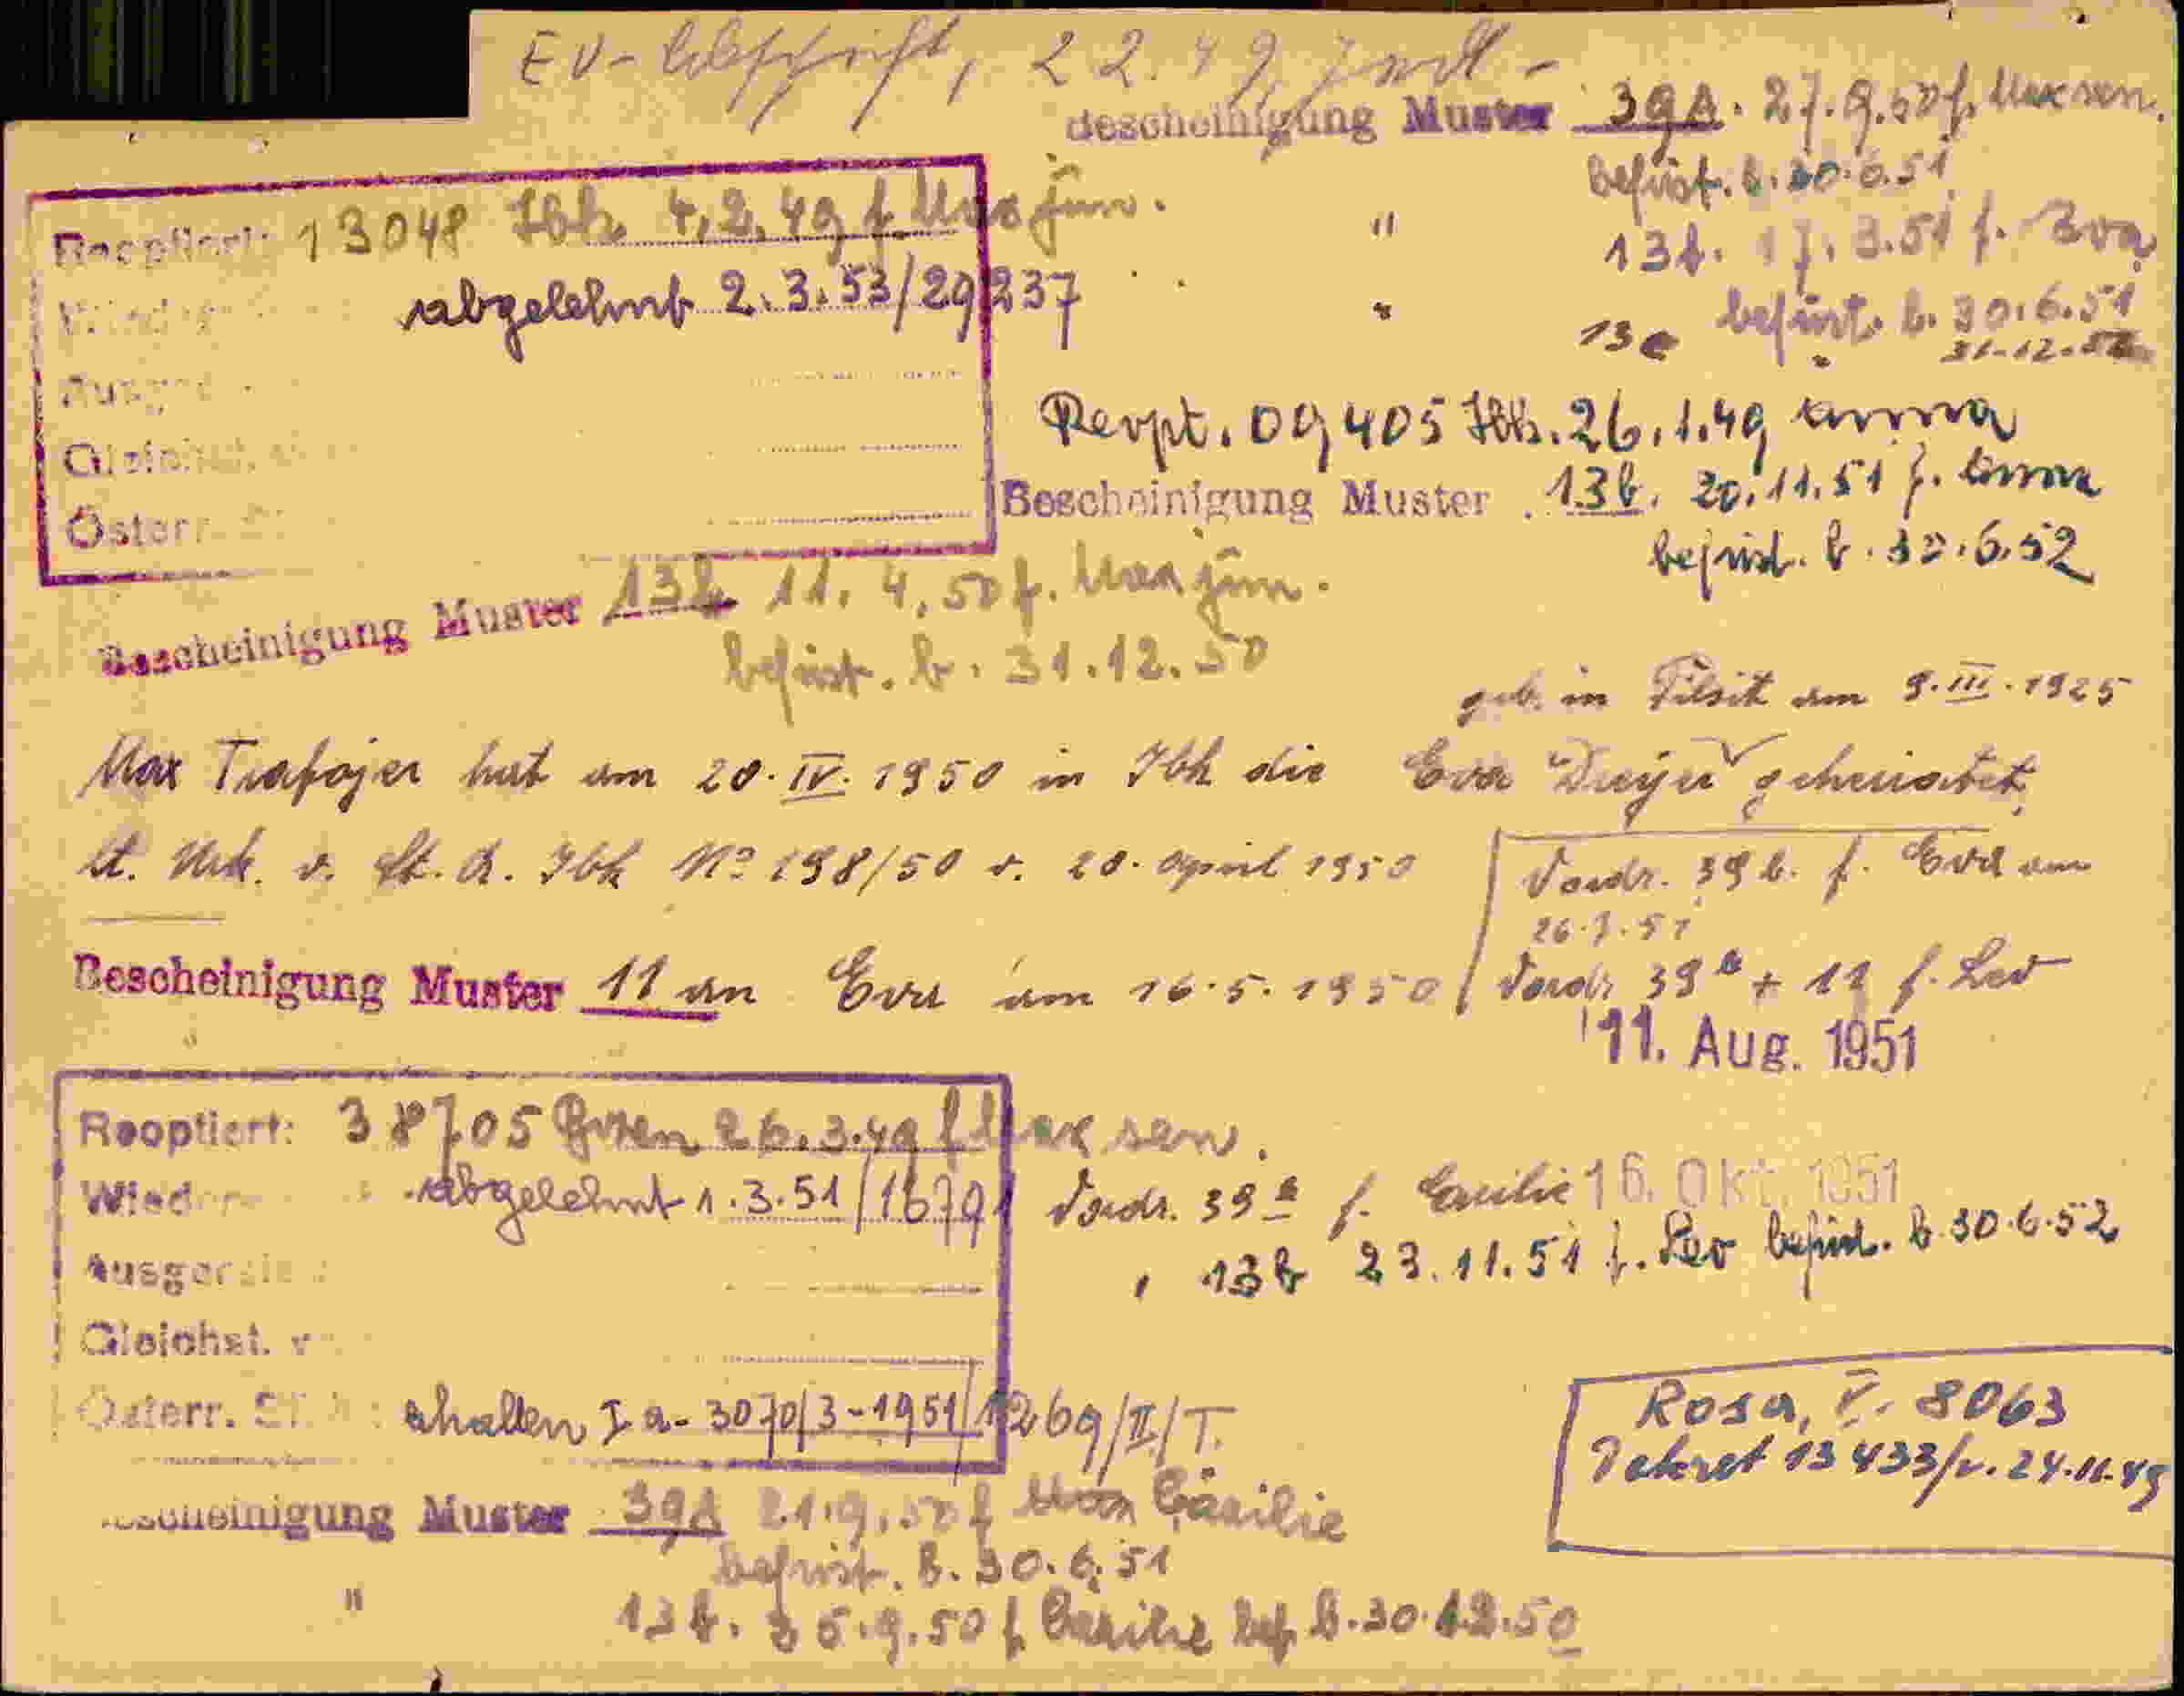 EV-Abschrift, 22.49,
Bescheinigung Muster 39A. 27.9.50 f. Max sen.
befrist. b. 30.6.51
Reoptiert: 13048 Ibk. 4.2.49 f Max jun.
" 13b. 17.3.51 f. Eva
befrist. b. 30.6.51
abgelehnt 2.3.53/29237
" 13e " 31.12.52
Reopt. 09405 Ibk. 26.1.49 Anna
Gleichst.
Bescheinigung Muster 13b. 20.11.51 f. Anna
befrist. b. 30.6.52
Österr.
Bescheinigung Muster 13b 11.4.50 f. Max jun.
befrist. b. 31.12.50
geb. in Tilsit am 9.III.1925
Max Trafojer hat am 20.IV.1950 in Ibk die Eva geheiratet,
lt. Urk. v. St.A. Ibk No 198/50 v. 20. April 1950
Vordr. 39b. f. Eva am
26.7.51
Bescheinigung Muster 11 an Eva am 16.5.1950
Vordr 39a + 11 f. Leo
11. Aug. 1951
Reoptiert: 38705 Bozen 26.3.49 f Max sen.
abgelehnt 1.3.51/16791
Vordr. 39a f. Cäcilie 16. Okt. 1951
" 13b 23.11.51 f. Leo befrist. b. 30.6.52
Gleichst. v
Österr. St. erhalten Ia-3070/3-1951/1269/II/T.
Rosa, V. 8063
Dekret 13433/v. 24.11.49
Bescheinigung Muster 39A 21.9.50 f Cäcilie
befrist. b. 30.6.51
" 13b. 5.9.50 f Cäcilie bef. b. 30.12.50